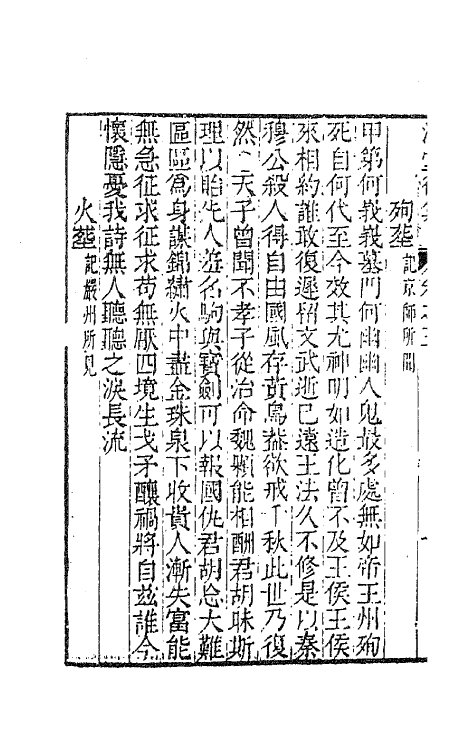 殉塟記京師所聞
甲第何峩峩墓門何幽幽人鬼最多處無如帝王州殉
死自何代至今效其尤神明如造化曾不及王侯王侯
來相約誰敢復遲留文武逝已遠王法久不修是以秦
穆公殺人得自由國風存黃鳥葢欲戒千秋此世乃復
然亡夫子曾聞不孝子從治命魏顆能相酬君胡昧斯
理以貽先人羞名駒與寶劍可以報國仇君胡忘大難
區區為身謀錦繡火中盡金珠泉下收貴人漸失富能
無急征求征求苟無厭四境生戈矛釀禍將自茲誰令
懷隱憂我詩無人聽聽之淚長流
火塟記嚴州所見